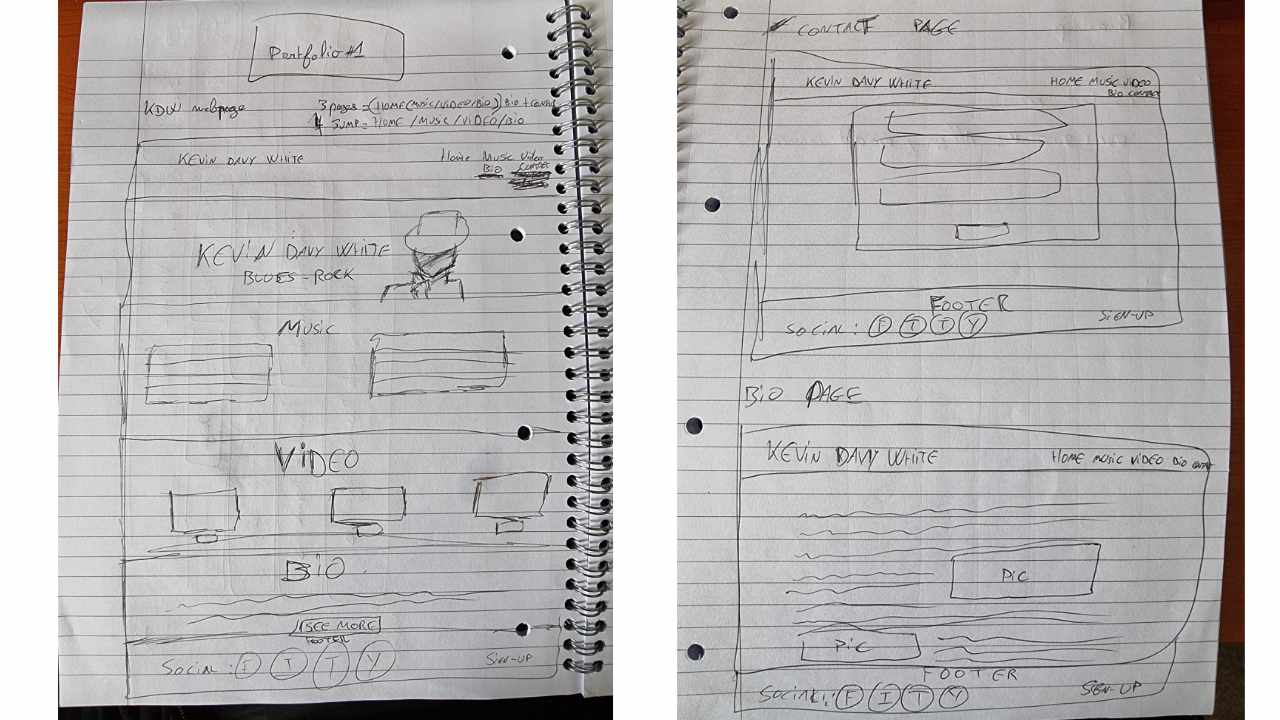 Portfolio #1
KDW webpage
3 pages = (HOME(MUSIC/VIDEO/BIO)) BIO + CONTACT
4 JUMP = HOME / MUSIC / VIDEO / BIO
KEVIN DAVY WHITE
Home Music Video
BIO CONTACT
KEVIN DAVY WHITE
BLUES - ROCK
MUSIC
VIDEO
BIO
SEE MORE
FOOTER
SOCIAL: F I T Y
SIGN-UP
CONTACT PAGE
KEVIN DAVY WHITE
HOME MUSIC VIDEO
BIO CONTACT
FOOTER
SOCIAL: F I T Y
SIGN-UP
BIO PAGE
KEVIN DAVY WHITE
HOME MUSIC VIDEO BIO CONTACT
PIC
PIC
FOOTER
SOCIAL: F I T Y
SIGN-UP